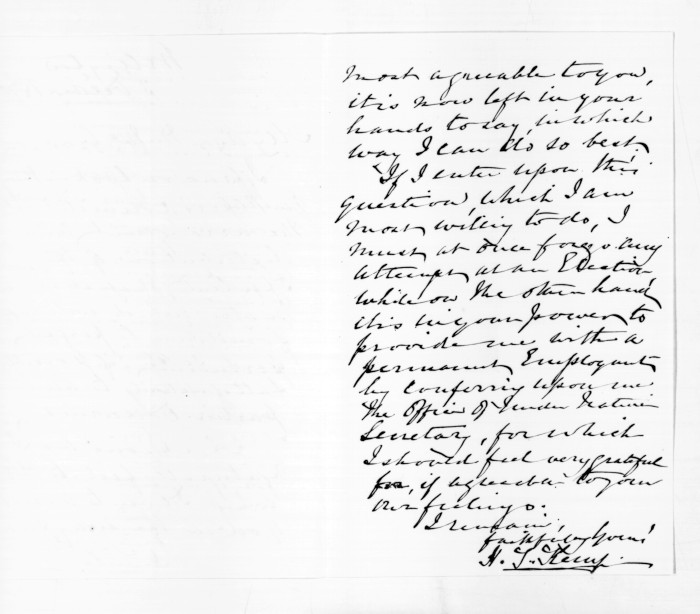 most agreeable to you,
it is now left in your
hands to say, in which
way I can do so best.
"If I enter upon this
question, which I am
most willing to do, I
must at once forego any
attempt at an Election
while on the other hand
it is in your power to
provide me with a
permanent Employment
by conferring upon me
the Office of Under Native
Secretary, for which
I should feel very grateful
for, if agreeable to your
own feelings.
I remain,
faithfully yours
H. T. Kemp.